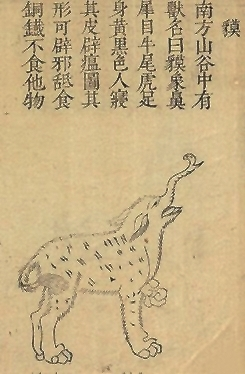 貘
南方山谷中有
獸名曰貘象鼻
犀目牛尾虎足
身黄黒色人寢
其皮辟瘟圖其
形可辟邪舐食
銅鐵不食他物